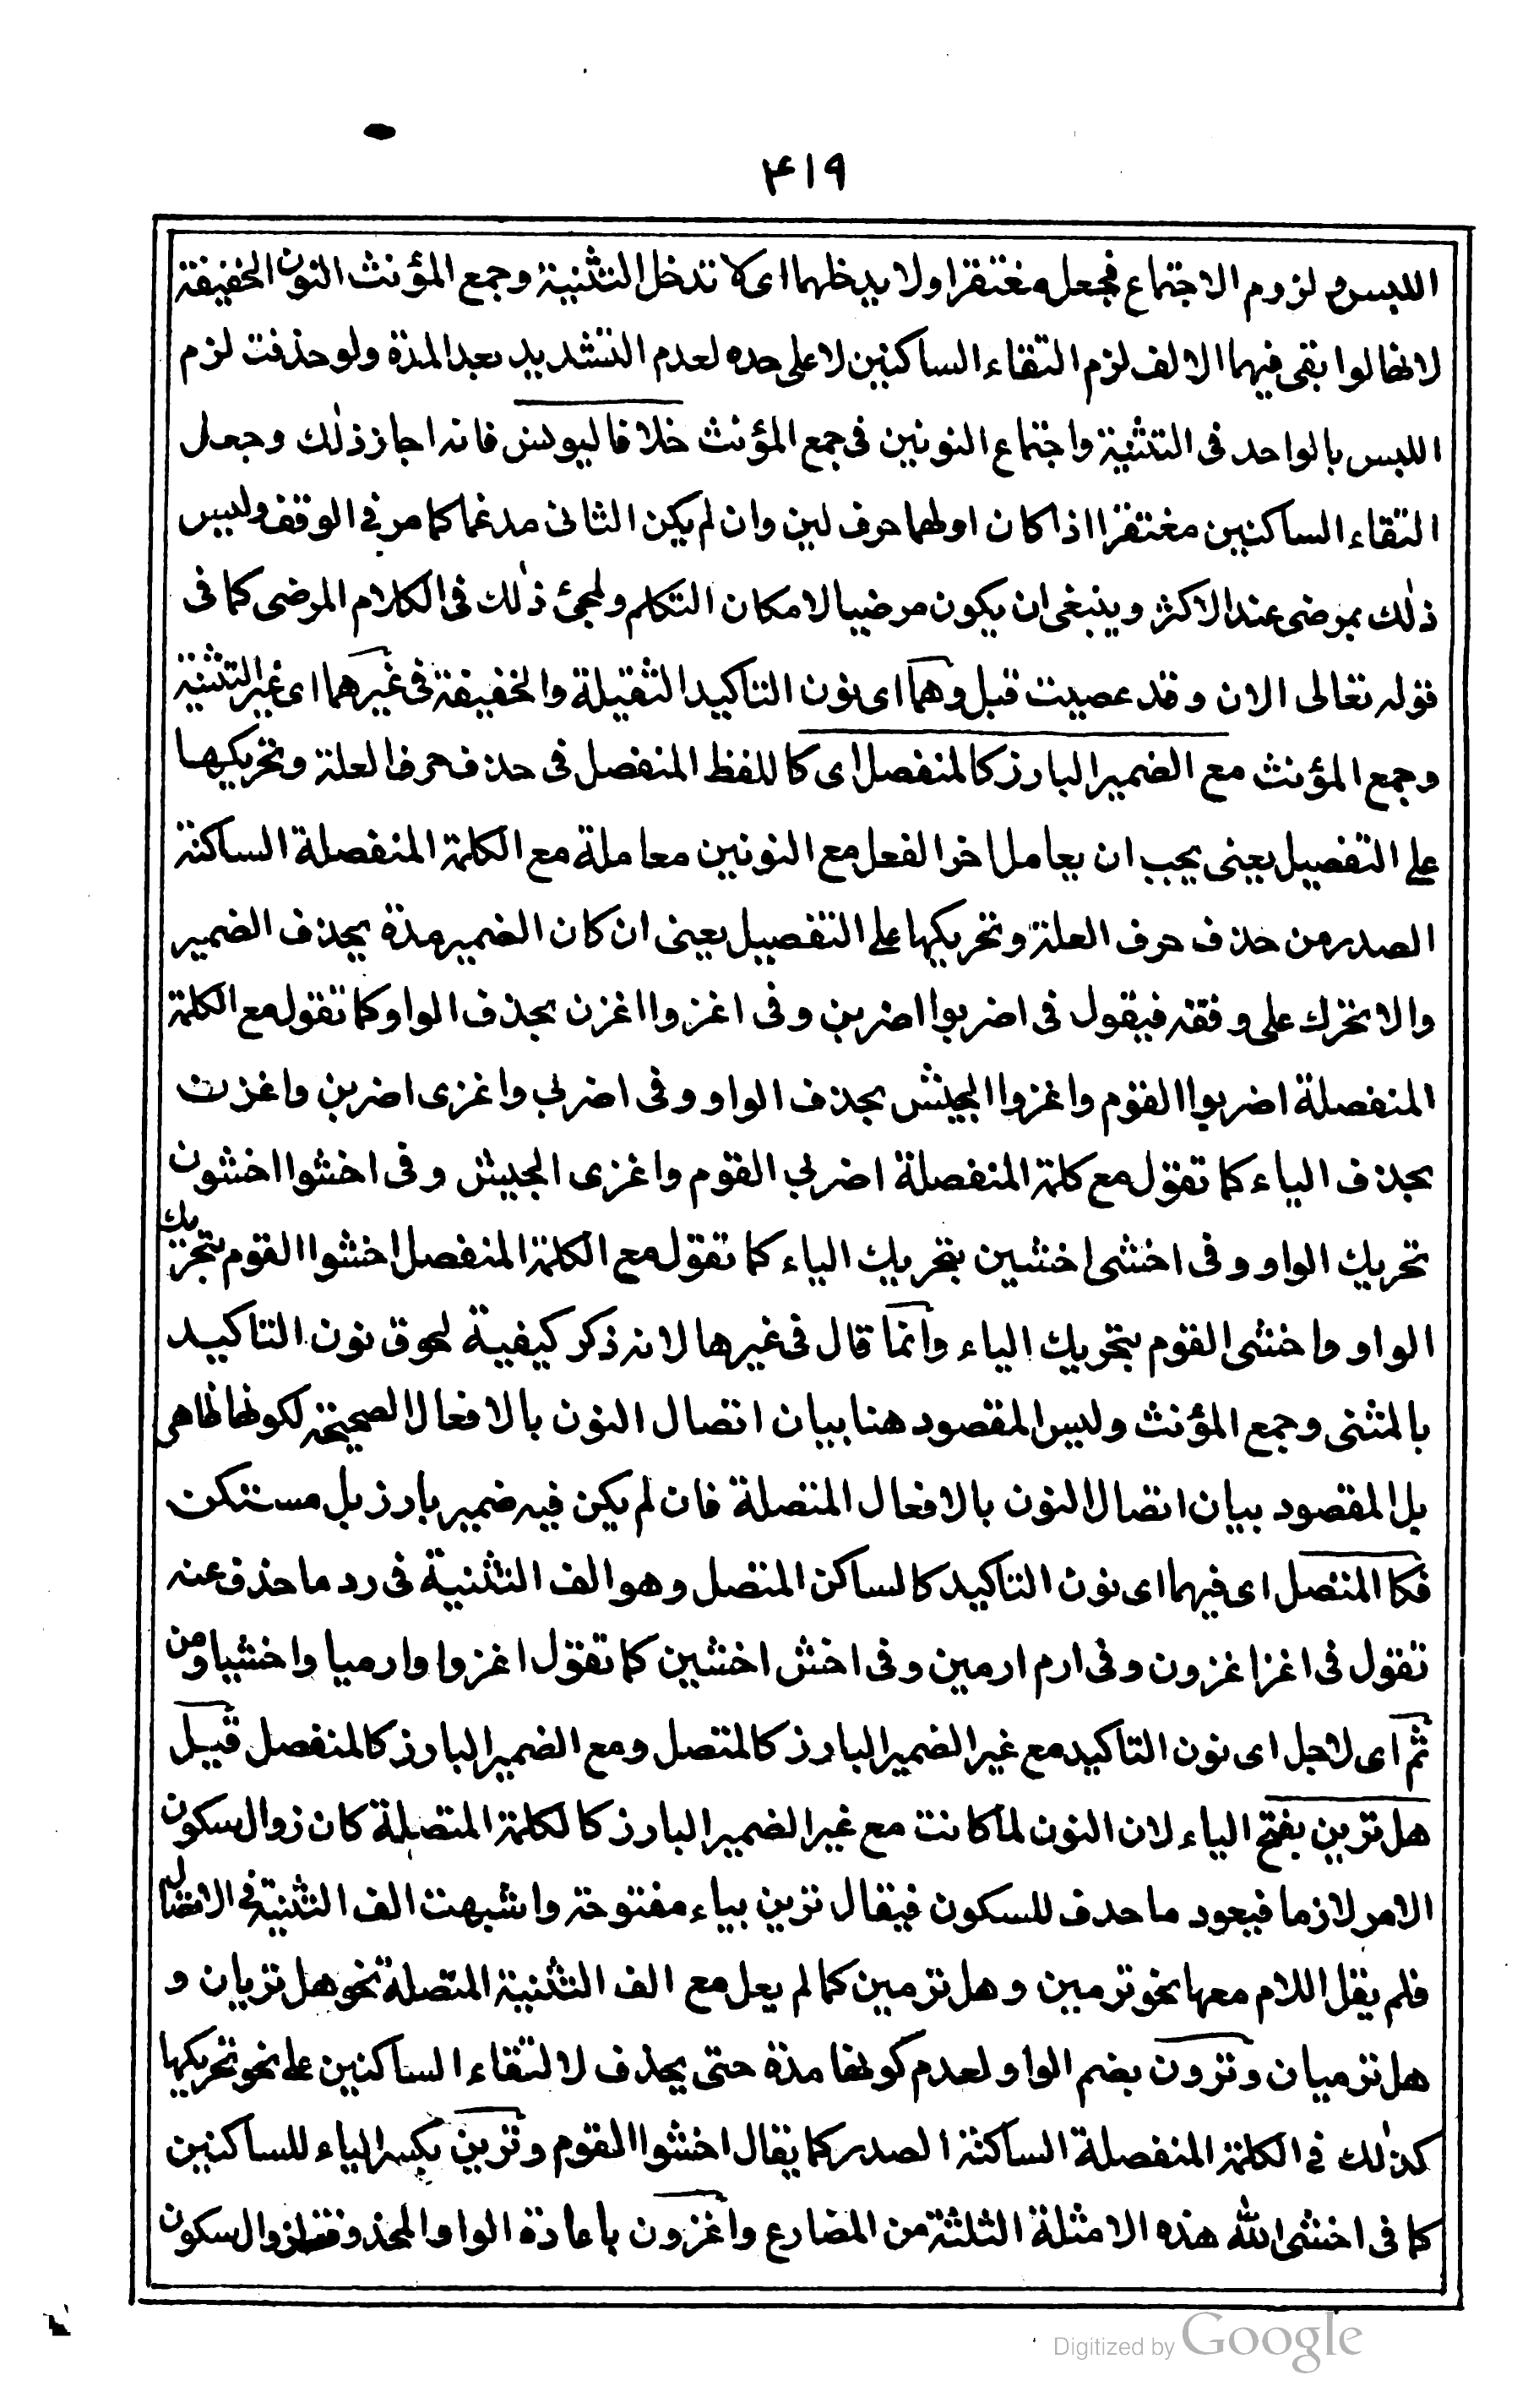 ۴۱۹
اللبس و لزوم الاجتماع فجعل مغتفرا ولا يدخلهما اى لا تدخل التثنية وجمع المؤنث النون الخفيفة
لانها لو ابقى فيهما الالف لزم التقاء الساكنين لا على حده لعدم التشديد بعد المدة ولو حذفت لزم
اللبس بالواحد فى التثنية واجتماع النونين فى جمع المؤنث خلافا ليونس فانه اجاز ذلك وجعل
التقاء الساكنين مغتفرا اذا كان اولهما حرف لين وان لم يكن الثانى مدغما كما مر فى الوقف وليس
ذلك بمرضى عند الاكثر وينبغى ان يكون مرضيا لامكان التكلم ولمجئ ذلك فى الكلام المرضى كما فى
قوله تعالى الان وقد عصيت قبل وهما اى نون التاكيد الثقيلة والخفيفة فى غيرهما اى غير التثنية
وجمع المؤنث مع الضمير البارز كالمنفصل اى كاللفظ المنفصل فى حذف حرف العلة وتحريكها
على التفصيل يعنى يجب ان يعامل اخر الفعل مع النونين معاملة مع الكلمة المنفصلة الساكنة
الصدر من حذف حرف العلة وتحريكها على التفصيل يعنى ان كان الضمير مدة يحذف الضمير
والا تحرك على وفقه فيقول فى اضربوا اضربن وفى اغزوا اغزن بحذف الواو كما تقول مع الكلمة
المنفصلة اضربوا القوم واغزوا الجيش بحذف الواو وفى اضربى واغزى اضربن واغزن
بحذف الياء كما تقول مع كلمة المنفصلة اضربى القوم واغزى الجيش وفى اخشوا اخشون
تحريك الواو وفى اخشى اخشين بتحريك الياء كما تقول مع الكلمة المنفصل اخشوا القوم بتحريك
الواو واخشى القوم بتحريك الياء وانما قال فى غيرها لانه ذكر كيفية لحوق نون التاكيد
بالمثنى وجمع المؤنث وليس المقصود هنا بيان اتصال النون بالافعال الصحيحة لكونها ظاهر
بل المقصود بيان اتصال النون بالافعال المتصلة فان لم يكن فيه ضمير بارز بل مستكن
فكا المتصل اى فيهما اى نون التاكيد كالساكن المتصل وهو الف التثنية فى رد ما حذف عنه
تقول فى اغز اغزون وفى ارم ارمين وفى اخش اخشين كما تقول اغزوا وارميا واخشيا ومن
ثم اى لاجل اى نون التاكيد مع غير الضمير البارز كالمتصل ومع الضمير البارز كالمنفصل قيل
هل ترين بفتح الياء لان النون لما كانت مع غير الضمير البارز كالكلمة المتصلة كان زوال سكون
الامر لازما فيعود ما حدف للسكون فيقال ترين بياء مفتوحة واشبهت الف التثنية فى الاتصال
فلم يقل اللام معها نحو ترمين وهل ترمين كما لم يعل مع الف التثنية المتصلة نحو هل تريان و
هل ترميان وترون بضم الواو لعدم كونها مدة حتى يحذف لالتقاء الساكنين على نحو تحريكها
كذلك فى الكلمة المنفصلة الساكنة الصدر كما يقال اخشوا القوم وترين بكسر الياء للساكنين
كما فى اخشى الله هذه الامثلة الثلثة من المضارع واغزون باعادة الواو المحذوفة لزوال السكون
Digitized by Google